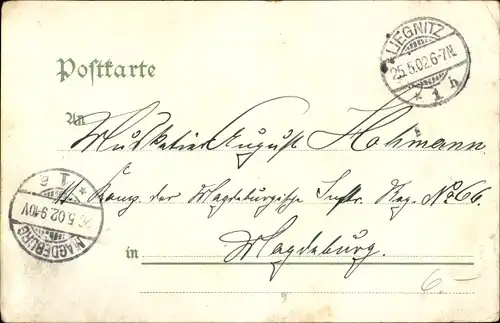 LIEGNITZ
25.5.02.6-7N.
* 1 h
Postkarte
An
Musketier August Hohmann
Komp. der Magdeburgische Inftr. Reg. No 66.
in Magdeburg.
MAGDEBURG
26.5.02.9-10V
* 1
6-